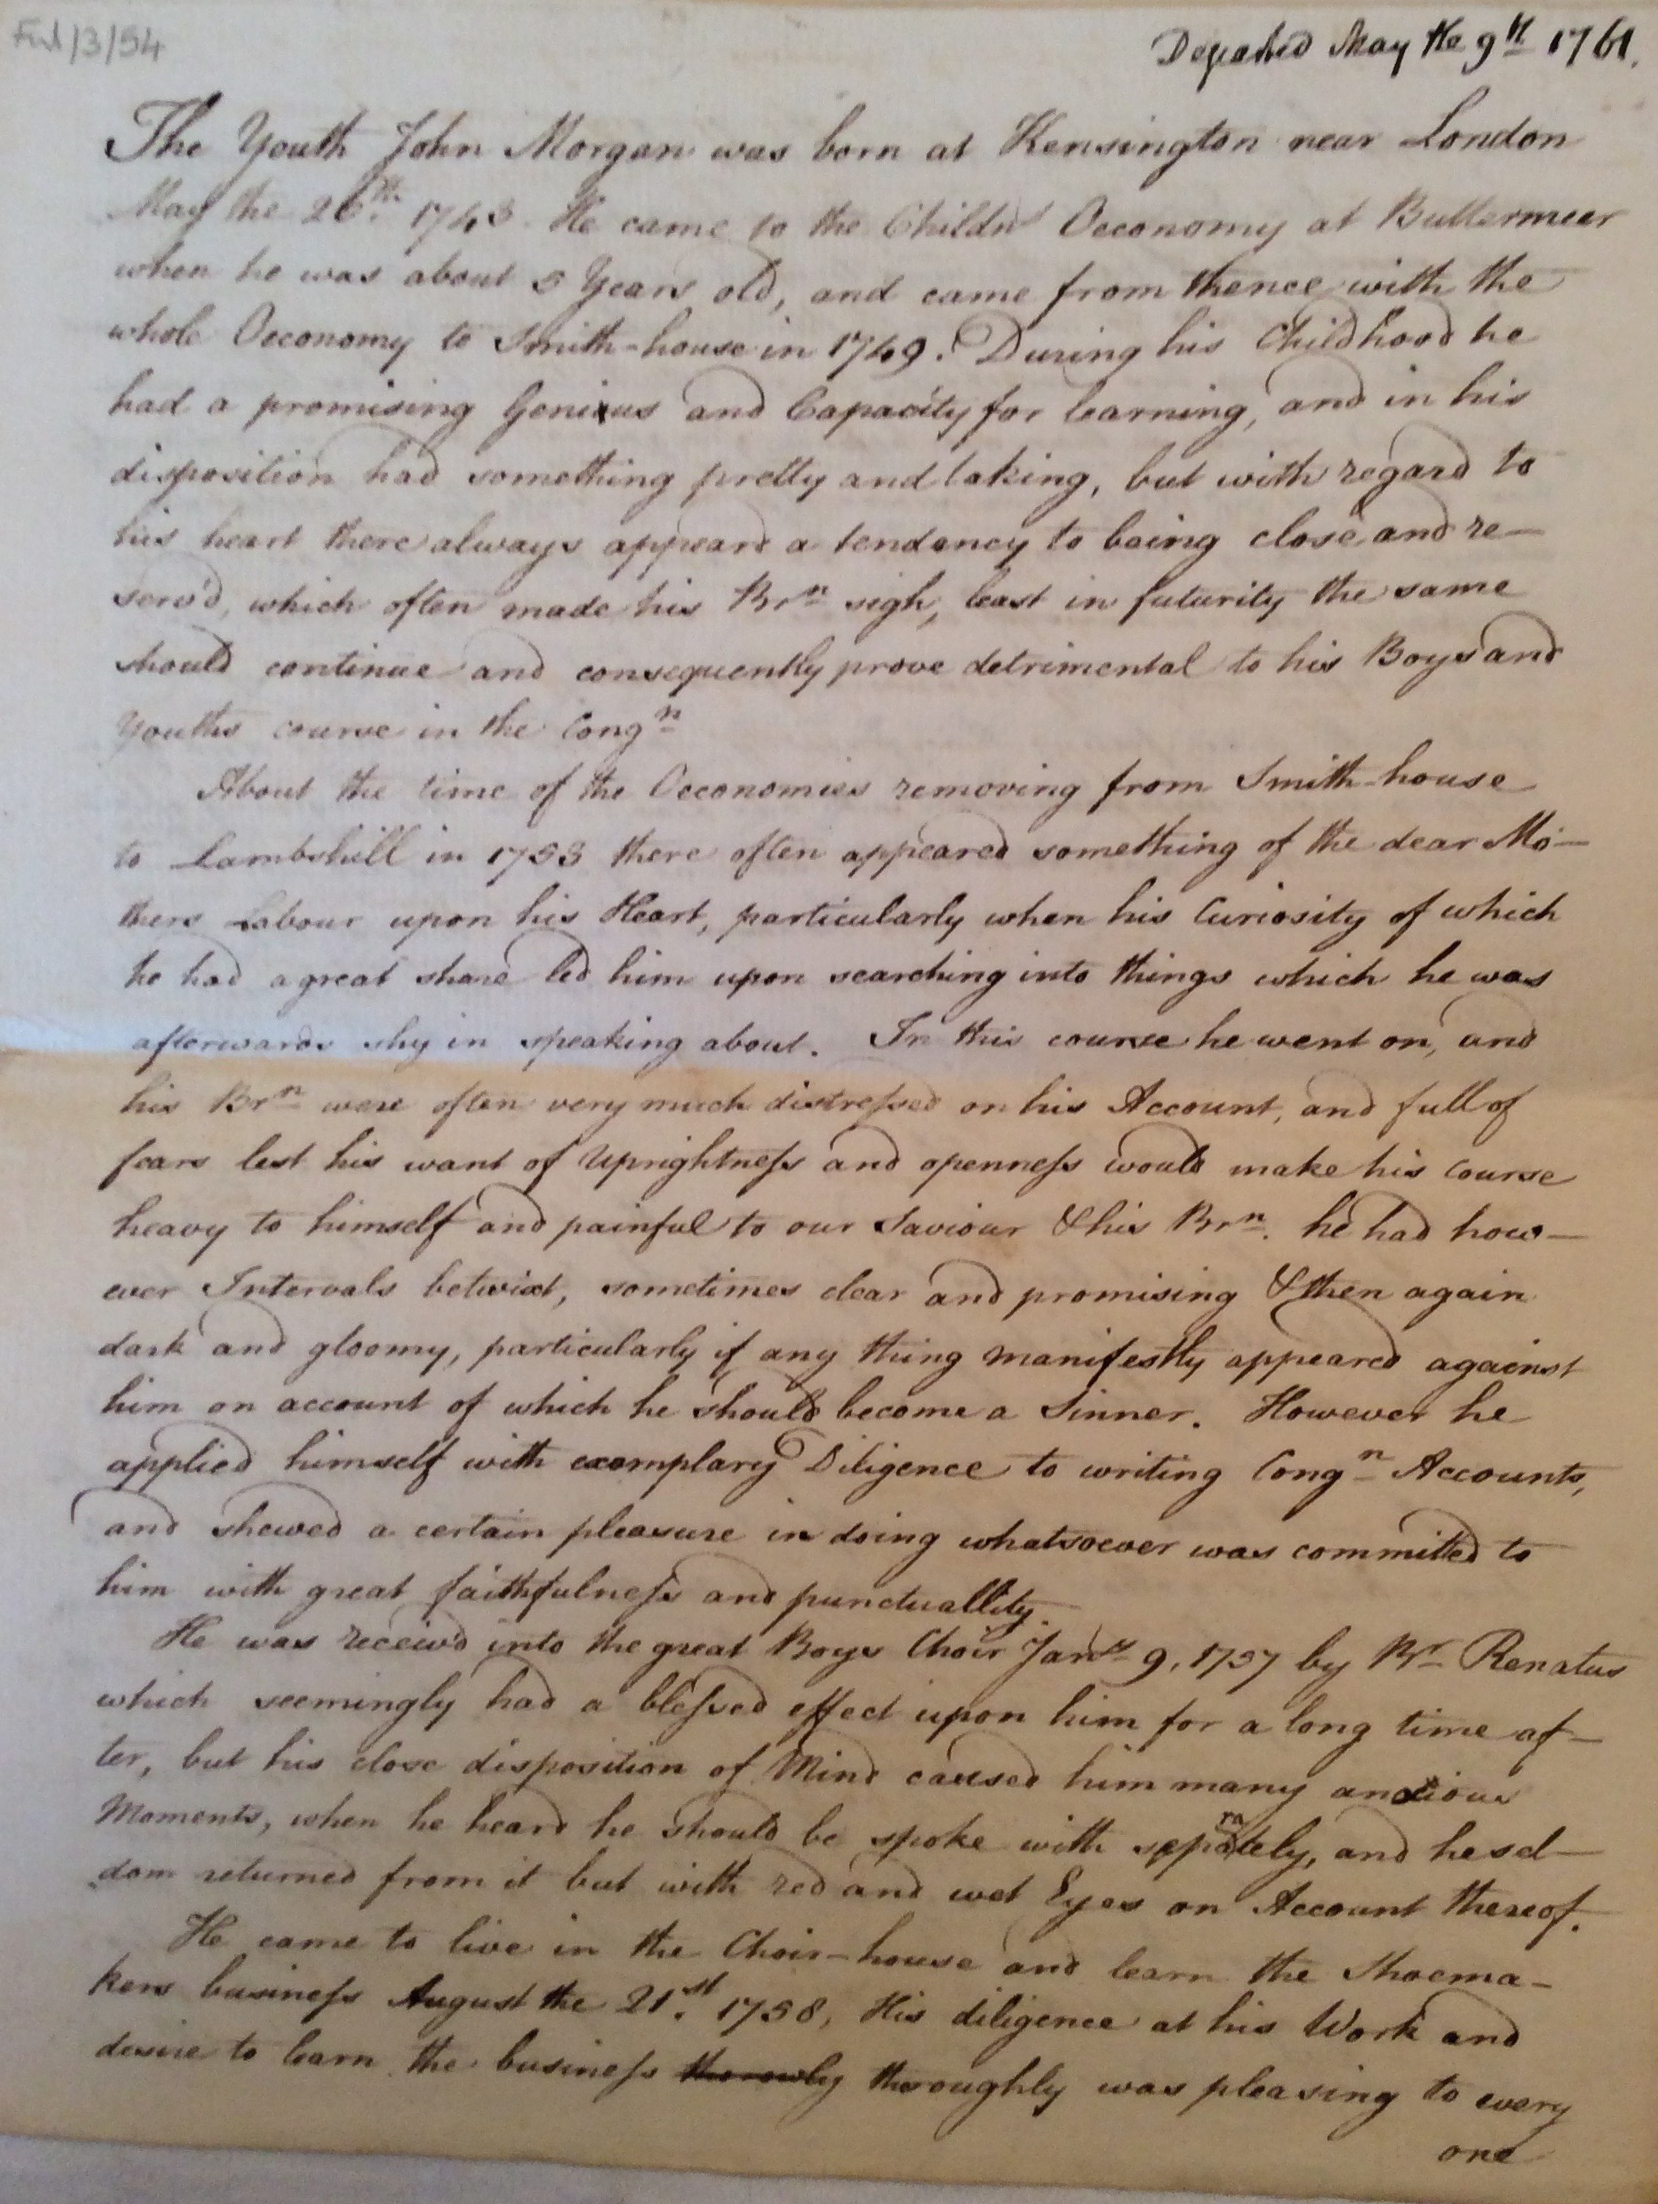 Ful/3/54
Departed May the 9th 1761.
The Youth John Morgan was born at Kensington near London
May the 26th. 1743 He came to the Childns Oeconomy at Buttermeer
when he was about 5 Years old, and came from thence with the
whole Oeconomy to Smith-house in 1749. During his Childhood he
had a promising Genius and Capacity for learning, and in his
disposition had something pretty and taking, but with regard to
his heart there always appeard a tendency to being close and re-
serv'd, which often made his Brn sigh, least in futurity the same
should continue and consequently prove detrimental to his Boys and
Youths course in the Congn
About the time of the Oeconomies removing from Smith-house
to Lambshill in 1753 there often appeared something of the dear Mo-
thers Labour upon his Heart, particularly when his Curiosity of which
he had a great share led him upon searching into things which he was
afterwards shy in speaking about. In this course he went on, and
his Brn were often very much distressed on his Account, and full of
fears lest his want of Uprightness and openness would make his Course
heavy to himself and painful to our Saviour & his Brn. he had how-
ever Intervals betwixt, sometimes clear and promising & then again
dark and gloomy, particularly if any thing manifestly appeared against
him on account of which he should become a Sinner. However he
applied himself with exemplary Diligence to writing Congn Accounts,
and shewed a certain pleasure in doing whatsoever was committed to
him with great faithfulness and punctuallity.
He was receiv'd into the great Boys Choir Janry 9, 1757 by Br Renatus
which seemingly had a blessed effect upon him for a long time af-
ter, but his close disposition of Mind caused him many anxious
Moments, when he heard he should be spoke with separately, and he sel-
dom returned from it but with red and wet Eyes on Account thereof.
He came to live in the Choir-house and learn the Shoema-
kers business August the 21st. 1758, His diligence at his Work and
desire to learn the business thorowly thoroughly was pleasing to every
one